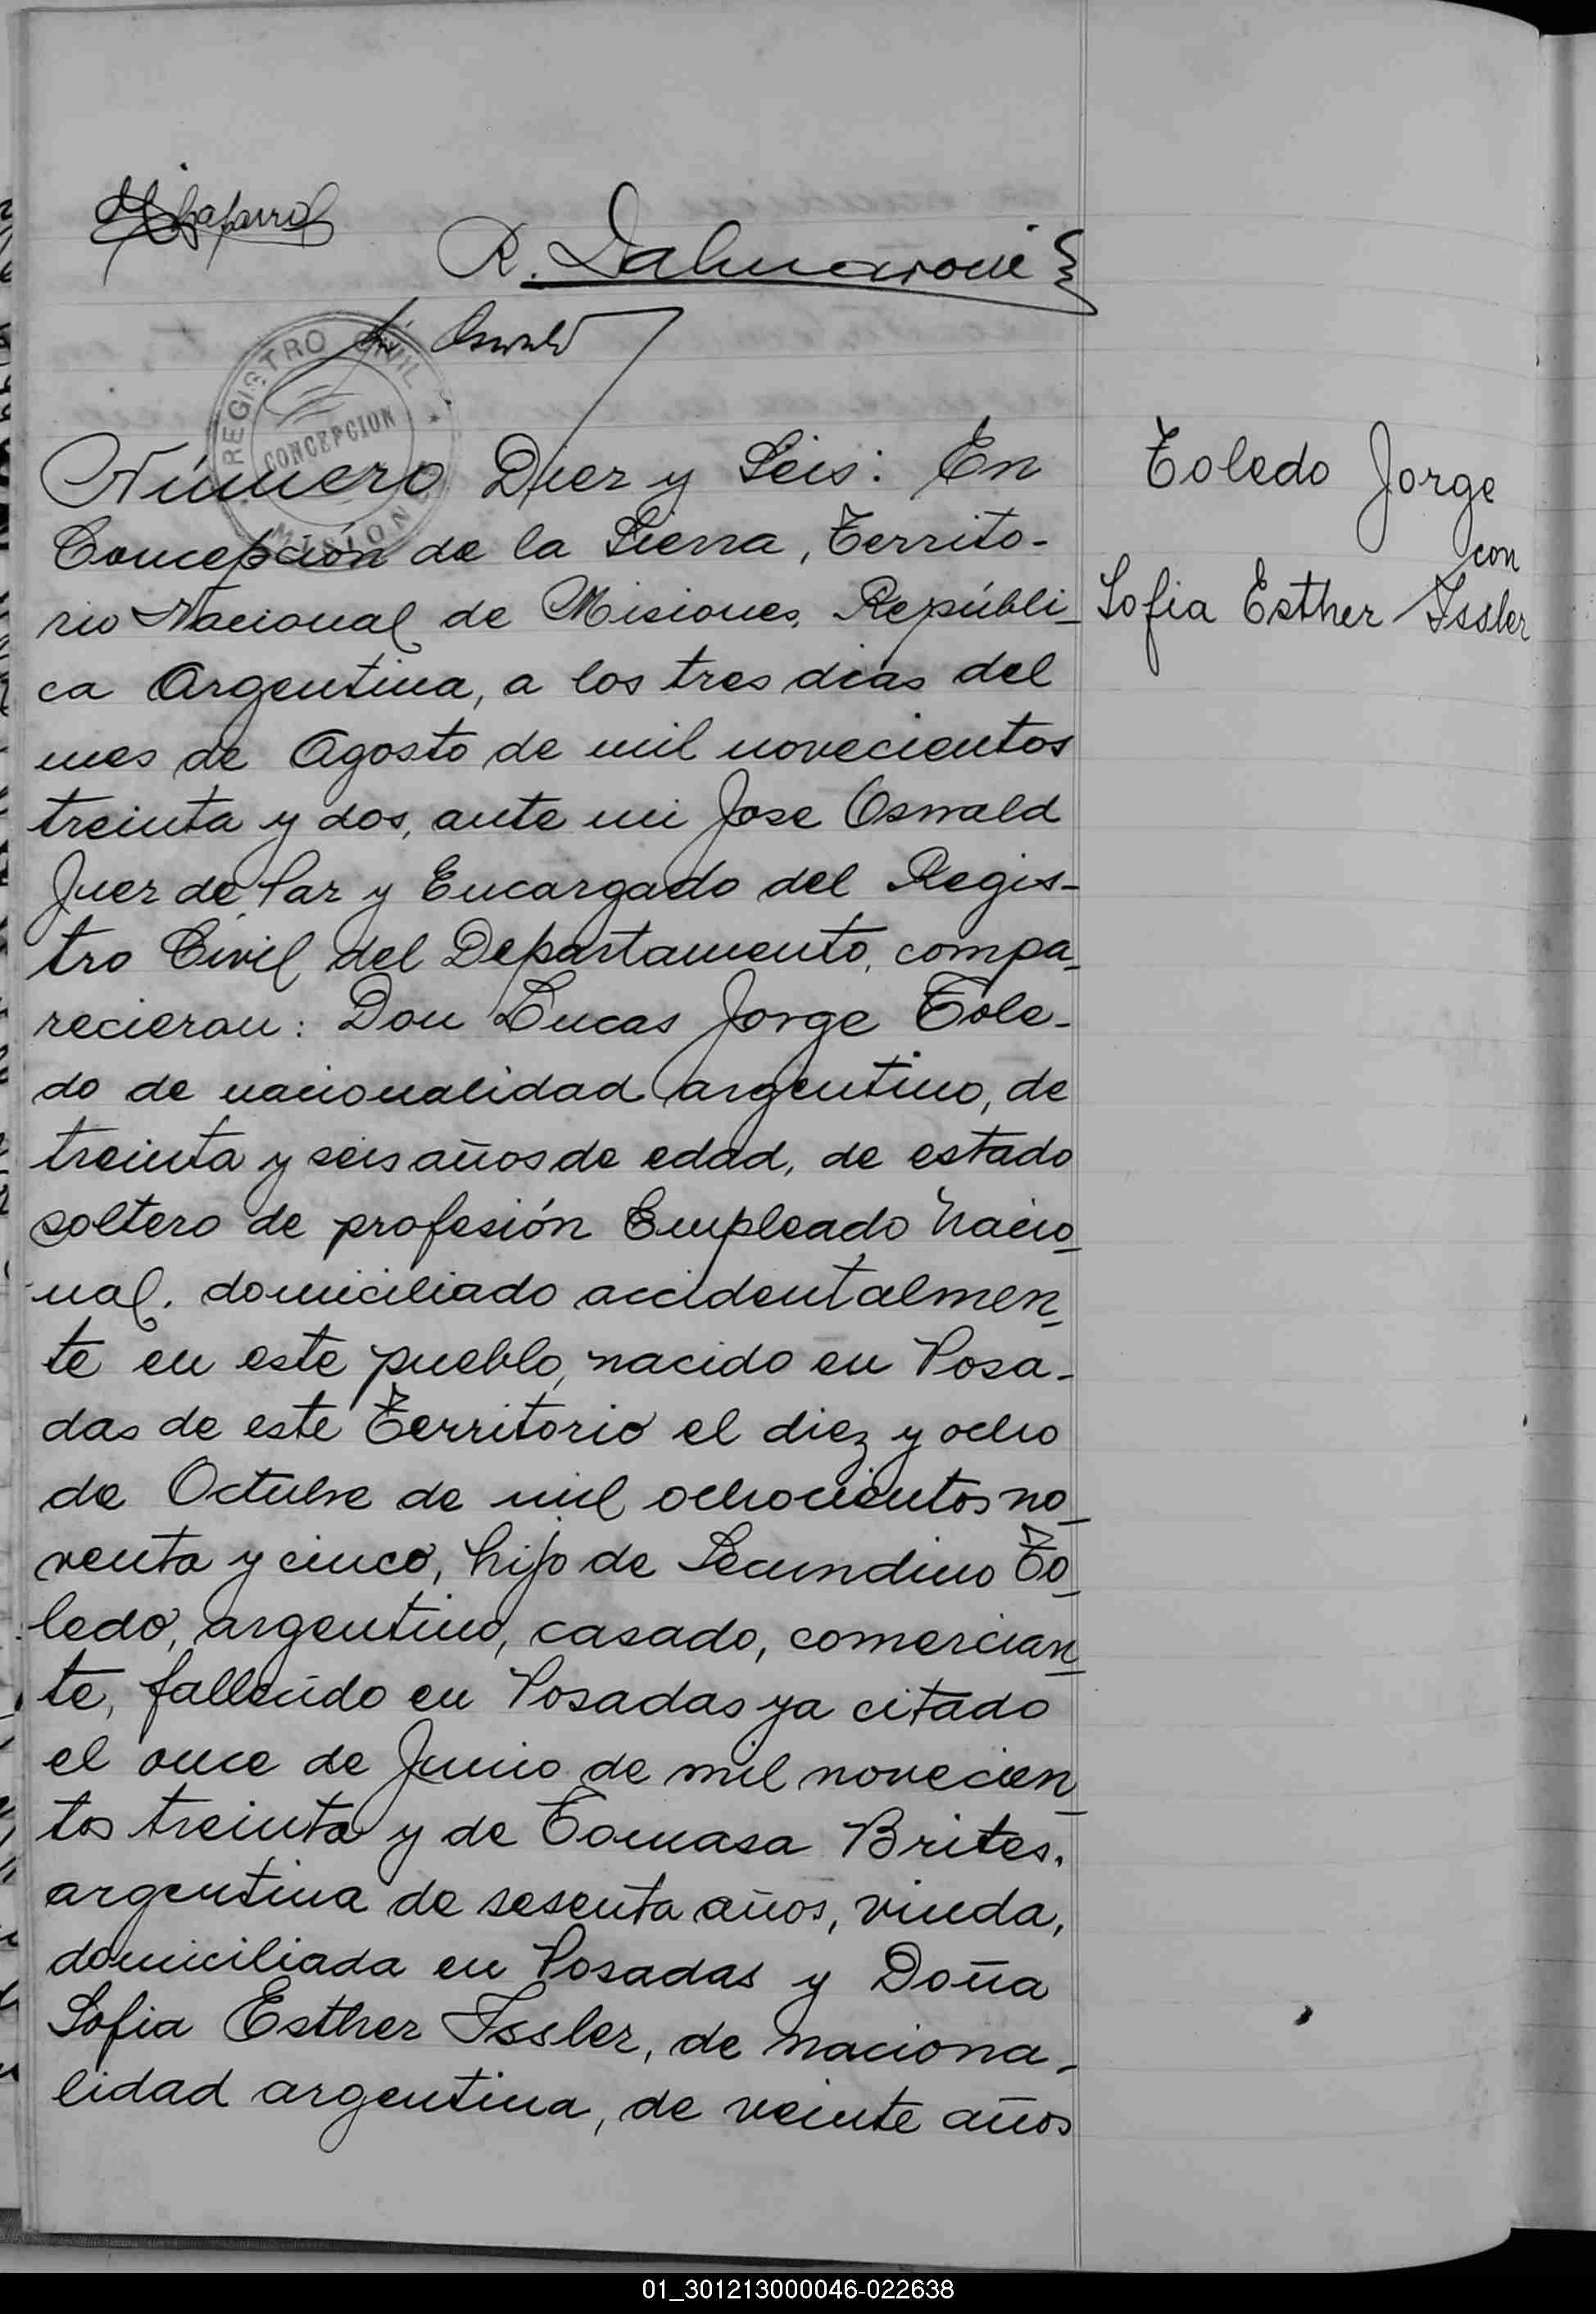 R. Dalmaroni
J. Oswald
REGISTRO CIVIL
CONCEPCION
MISIONES
Número Diez y Seis: En
Concepción de la Sierra, Territo-
rio Nacional de Misiones, Repúbli-
ca Argentina, a los tres dias del
mes de Agosto de mil novecientos
treinta y dos, ante mi Jose Oswald
Juez de Paz y Encargado del Regis-
tro Civil del Departamento, compa-
recieron: Don Lucas Jorge Tole-
do de nacionalidad argentino, de
treinta y seis años de edad, de estado
soltero de profesión Empleado Nacio-
nal. domiciliado accidentalmen-
te en este pueblo, nacido en Posa-
das de este Territorio el diez y ocho
de Octubre de mil ochocientos no-
venta y cinco, hijo de Secundino To-
ledo, argentino, casado, comercian-
te, fallecido en Posadas ya citado
el once de Junio de mil novecien-
tos treinta y de Tomasa Brites,
argentina de sesenta años, viuda,
domiciliada en Posadas y Doña
Sofia Esther Issler, de naciona-
lidad argentina, de veinte años
Toledo Jorge
con
Sofia Esther Issler
01_301213000046-022638